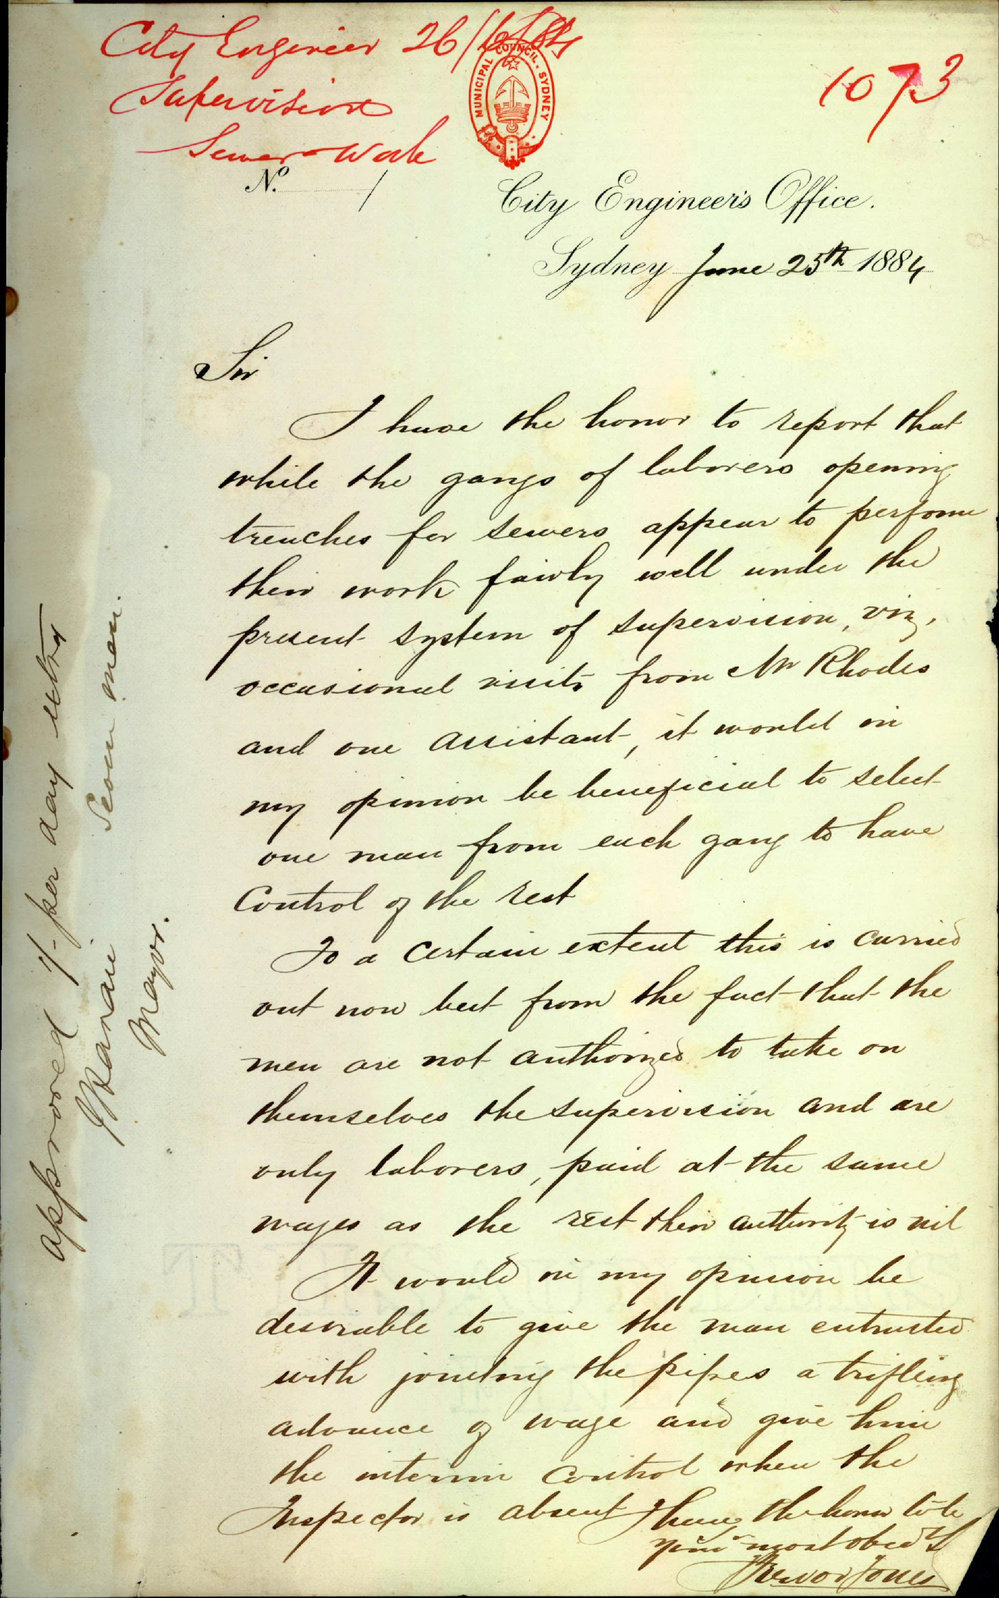 City Engineer 26/6/84
Supervision
Sewer Work
MUNICIPAL COUNCIL SYDNEY
1073
No. /
City Engineer's Office.
Sydney June 25th 1884
Sir
I have the honor to report that
while the gangs of laborers opening
trenches for sewers appear to perform
their work fairly well under the
present system of supervision, viz,
occasional visits from Mr Rhodes
and one assistant, it would in
my opinion be beneficial to select
one man from each gang to have
Control of the rest
To a certain extent this is carried
out now but from the fact that the
men are not authorized to take on
themselves the supervision and are
only laborers, paid at the same
wages as the rest their authority is nil
It would in my opinion be
desirable to give the man entrusted
with jointing the pipes a trifling
advance of wage and give him
the interim control when the
Inspector is absent I have the honor to be
Your most obedt S
Trevor Jones
approved 1/- per day extra
men.
Mayor.